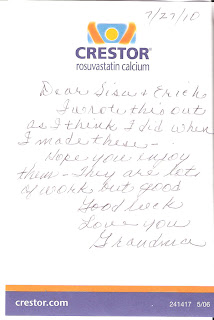 7/27/10
CRESTOR®
rosuvastatin calcium
Dear Lisa & Erich
I wrote this out
as I think I did when
I made these -
Hope you enjoy
them - They are lots
of work but good
Good luck
Love you
Grandma
crestor.com
241417 5/06